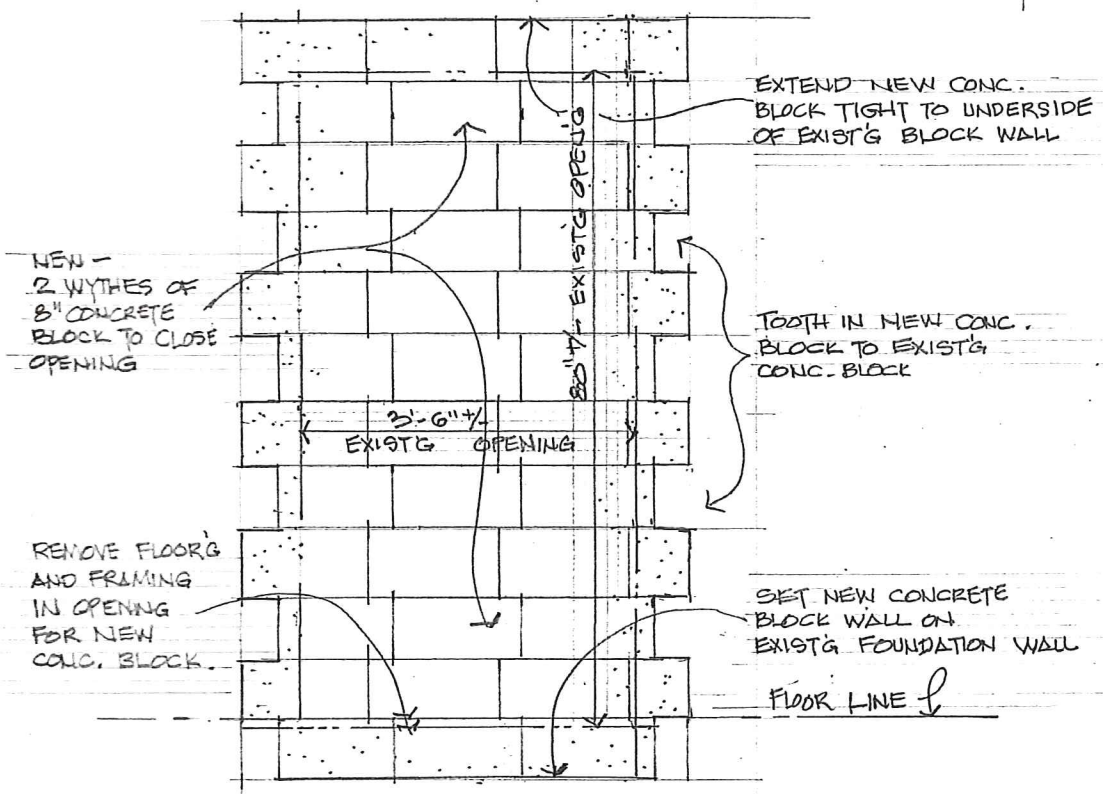 EXTEND NEW CONC.
BLOCK TIGHT TO UNDERSIDE
OF EXIST'G BLOCK WALL
80" +/- EXIST'G OPEN'G
NEW -
2 WYTHES OF
8" CONCRETE
BLOCK TO CLOSE
OPENING
TOOTH IN NEW CONC.
BLOCK TO EXIST'G
CONC. BLOCK
3'-6" +/-
EXIST'G OPENING
REMOVE FLOOR'G
AND FRAMING
IN OPENING
FOR NEW
CONC. BLOCK.
SET NEW CONCRETE
BLOCK WALL ON
EXIST'G FOUNDATION WALL
FLOOR LINE